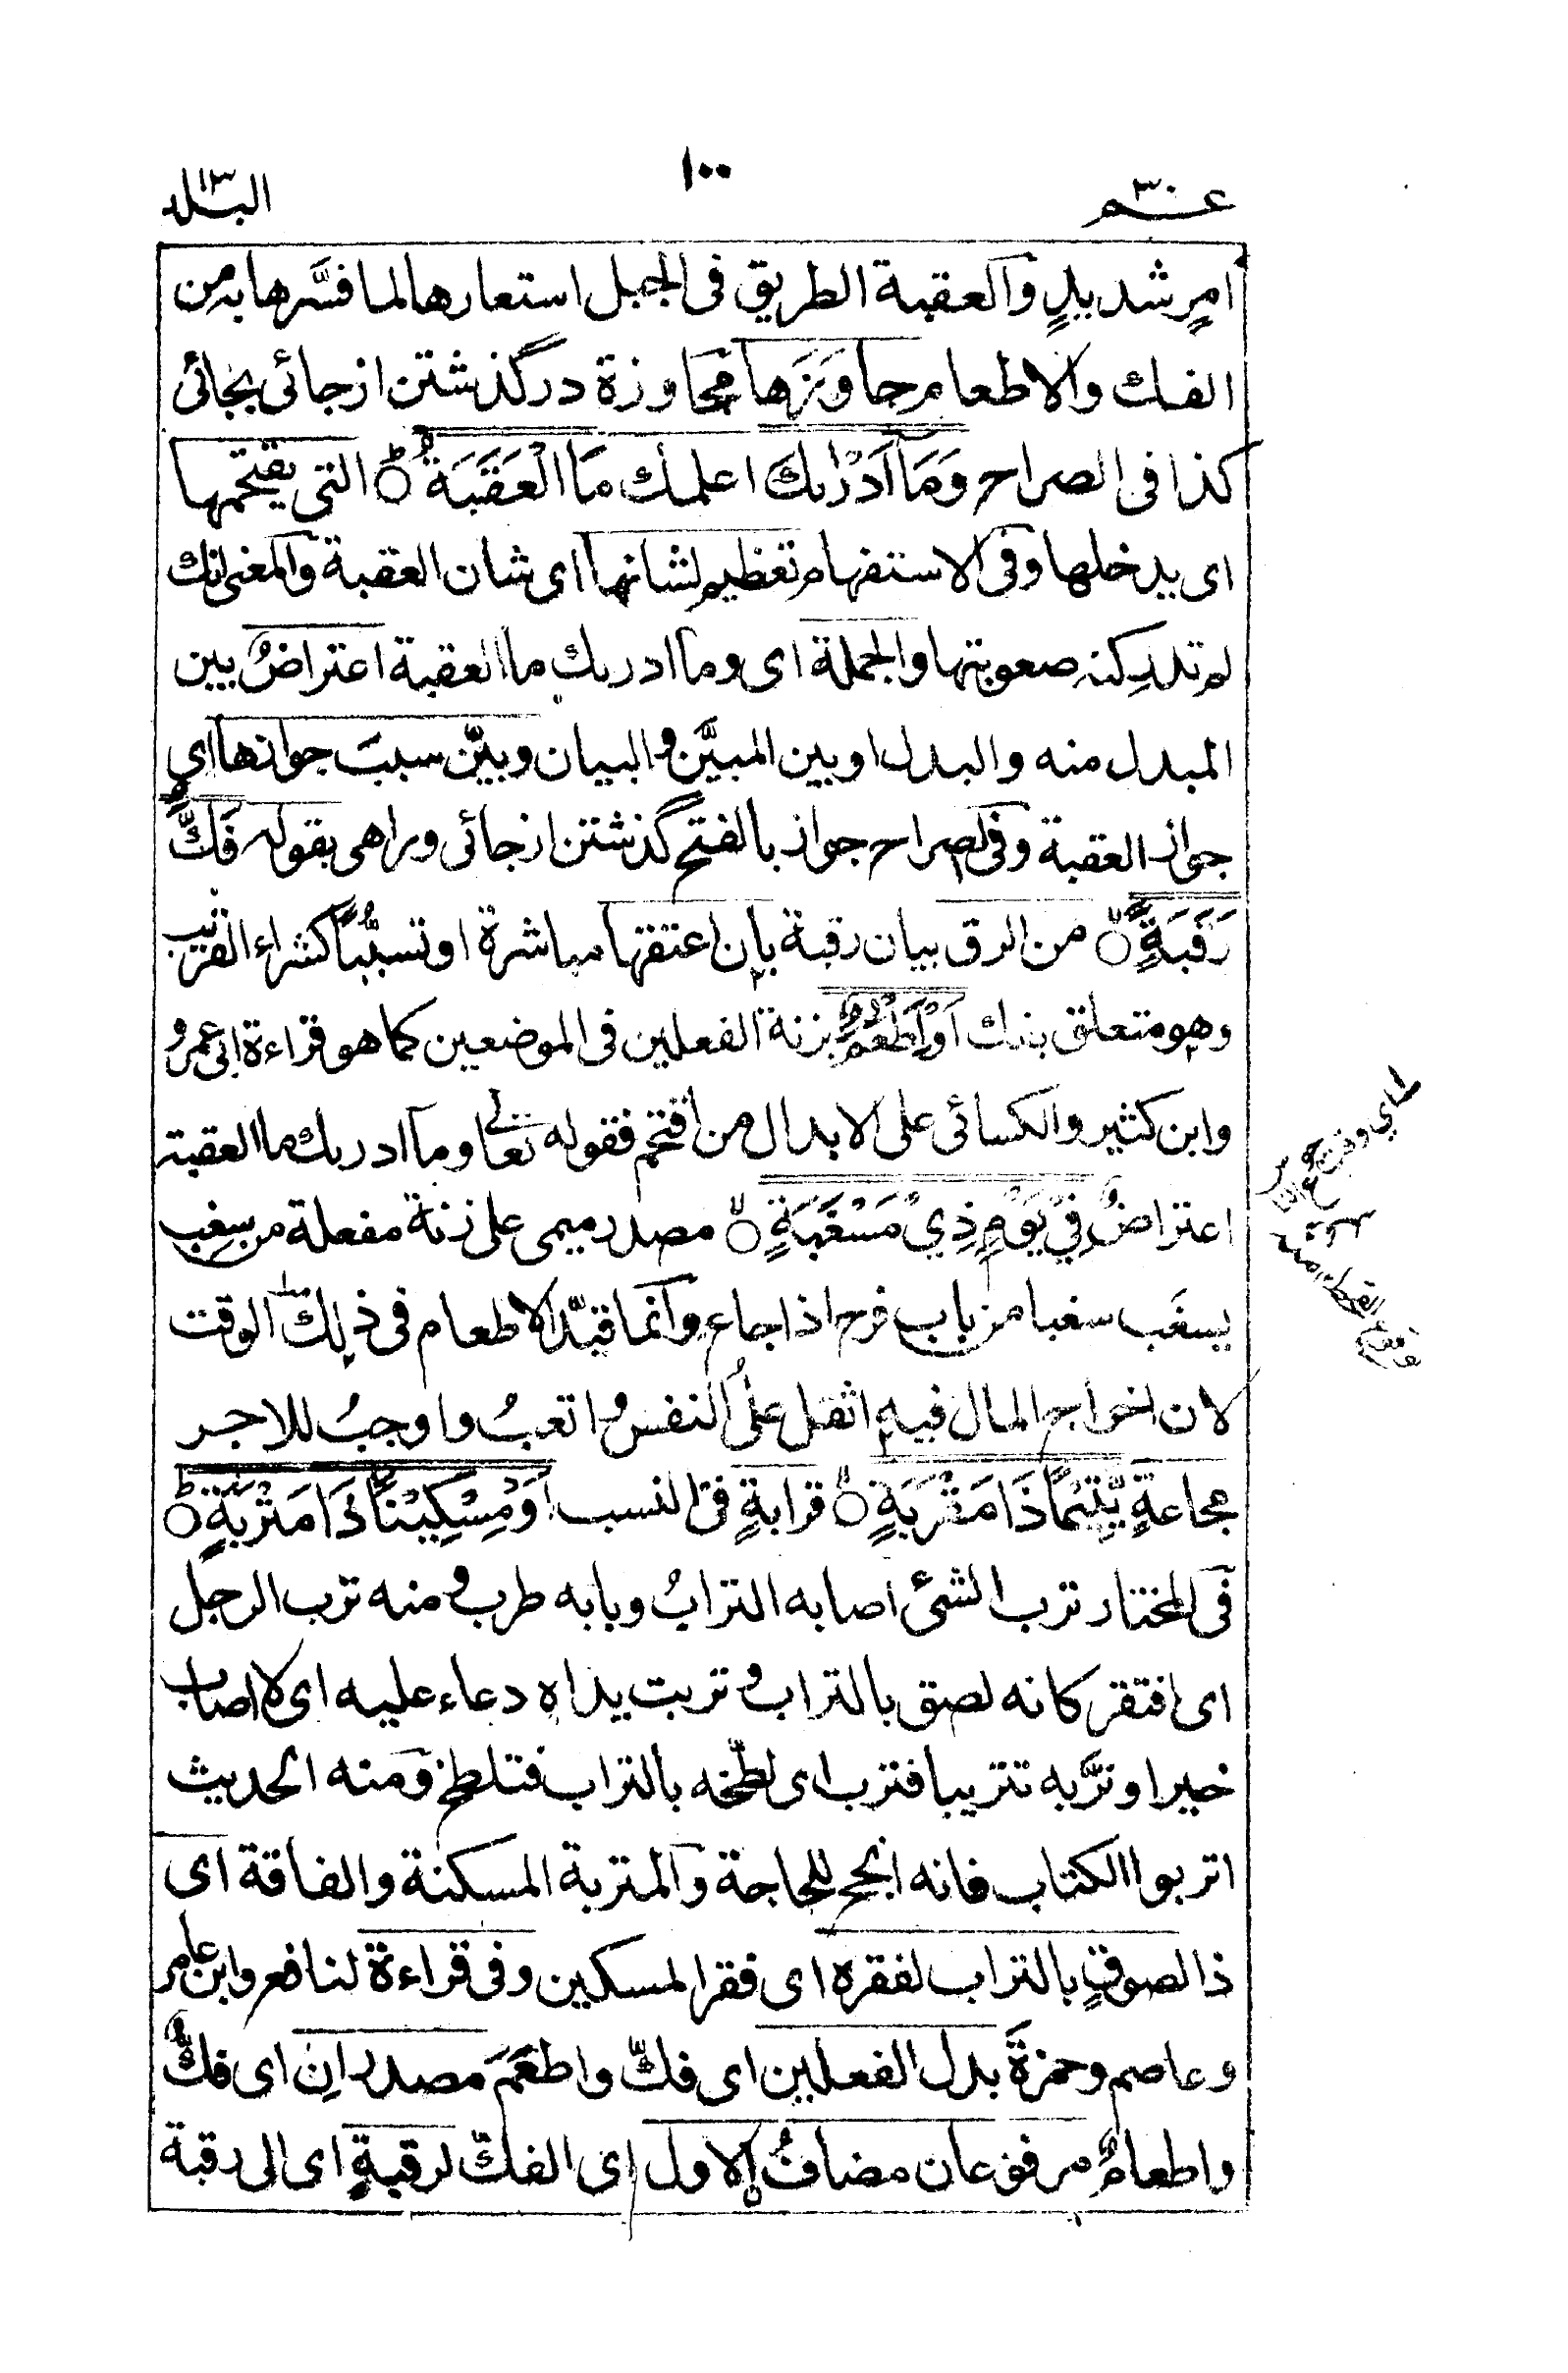 عم ٣٠
١٠٠
البلد ١٣
امرٍ شديدٍ والعقبة الطريق فى الجبل استعارها لما فسَّرها به من
الفك والاطعام جاوَزَها مجاوزة در گذشتن از جائى بجائى
كذا فى الصراح وَمَآ اَدْرٰىكَ اعلمك مَا الْعَقَبَةُ ۝ التى يقتحمها
اى يدخلها وفى الاستفهام تعظيم لشانها اى شان العقبة والمعنى انك
لم تدرِ كنه صعوبتها والجملة اى وما ادرىك ما العقبة اعتراضٌ بين
المبدل منه والبدل او بين المبيَّن والبيان وبيّن سببَ جوازها اى
جواز العقبة وفى الصراح جواز بالفتح گذشتن از جائى وراهى بقوله فَكَّ
رَقَبَةٍ ۝ من الرق بيان رقبة بان اعتقها مباشرة او تسببًا كشراء القريب
وهو متعلق بفك اَوْ اَطْعَمَ بزنة الفعلين فى الموضعين كما هو قراءة ابى عمرو
وابن كثير والكسائى على الابدال من اقتحم فقوله تعالى وما ادرىك ما العقبة
اعتراضٌ فِيْ يَوْمٍ ذِيْ مَسْغَبَةٍ ۝ مصدر ميمى على زنة مفعلة من سغِب
يسغَب سغبا من باب فرح اذا جاع وانما قيّد الاطعام فى ذلك الوقت
لان اخراج المال فيه اثقل على النفس واتعبُ واوجبُ للاجر
مجاعةٍ يَّتِيْمًا ذَا مَقْرَبَةٍ ۝ قرابةٍ فى النسب اَوْ مِسْكِيْنًا ذَا مَتْرَبَةٍ ۝
فى المختار ترب الشئ اصابه الترابُ وبابه طرب ومنه ترب الرجل
اى افتقر كانه لصق بالتراب وتربت يداه دعاء عليه اى لا اصاب
خيرا وترَّبه تتريبا فترب اى لطّخه بالتراب فتلطخ ومنه الحديث
اتربوا الكتاب فانه انجح للحاجة والمتربة المسكنة والفاقة اى
ذا لصوقٍ بالتراب لفقره اى فقر المسكين وفى قراءة لنافع وابن عامر
وعاصم وحمزةَ بدل الفعلين اى فكّ واطعَمَ مصدرانِ اى فكٌّ
واطعامٌ مرفوعان مضافُ الاول اى الفكّ لرقبةٍ اى الى رقبة